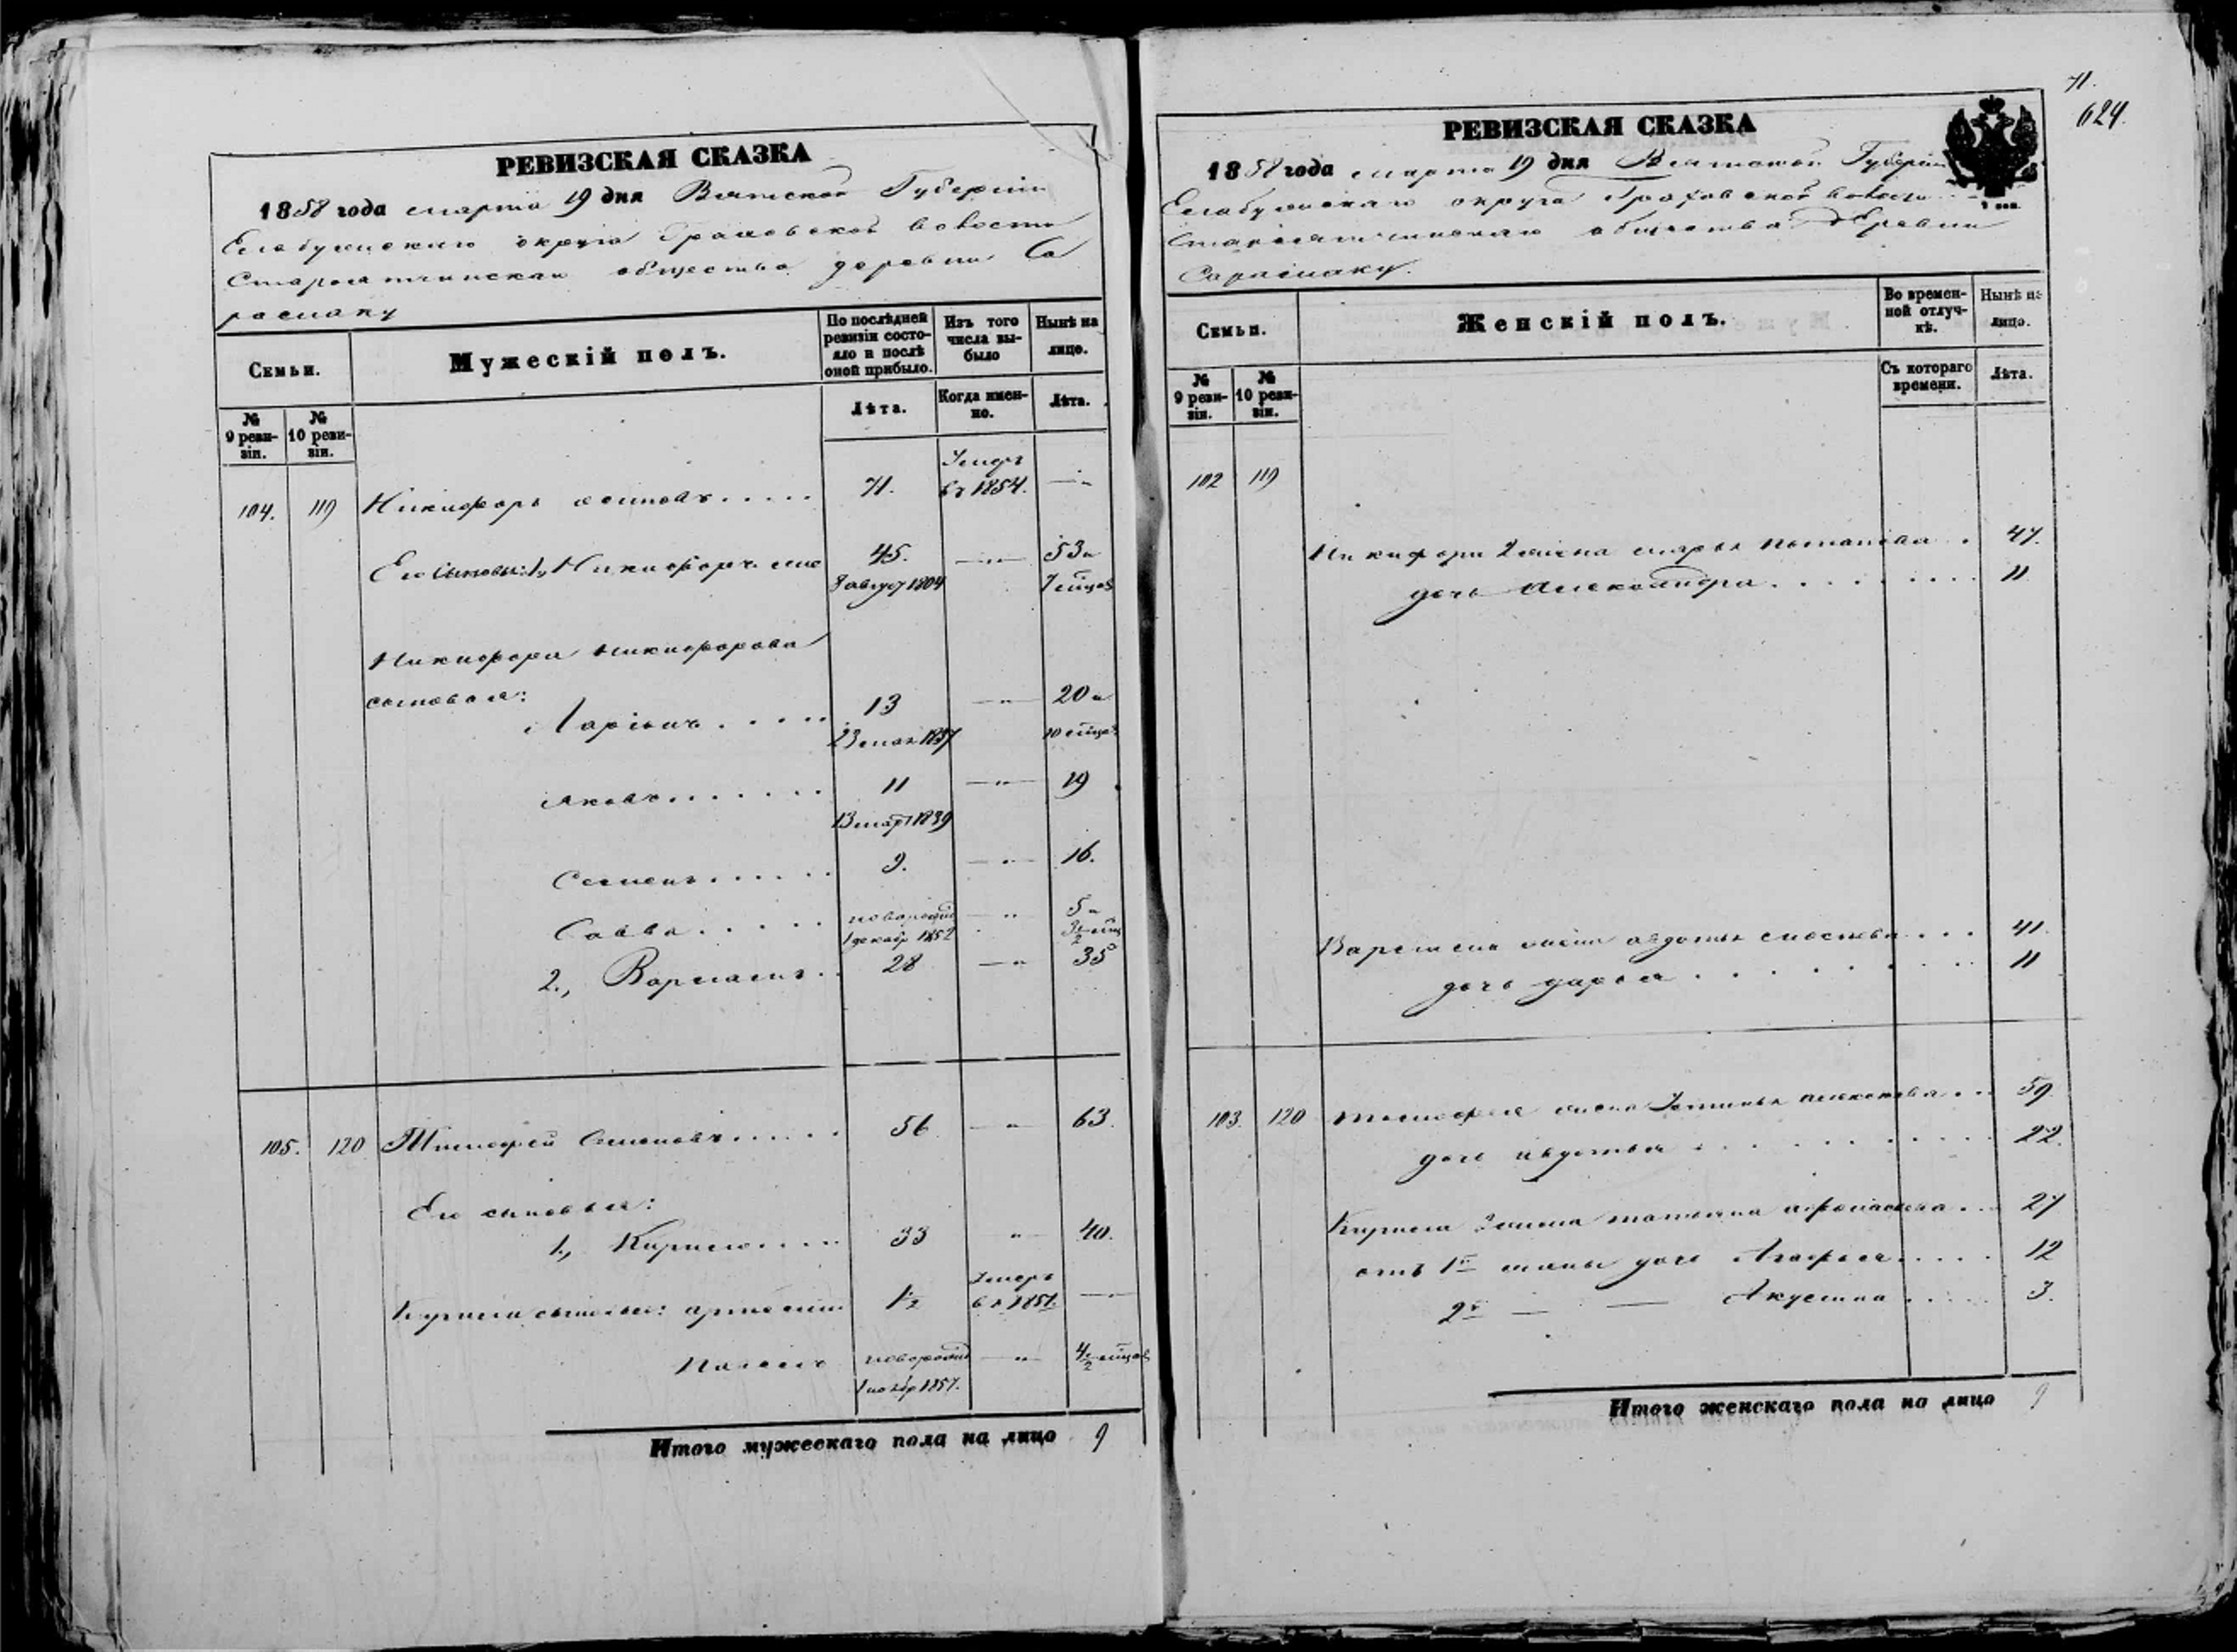 РЕВИЗСКАЯ СКАЗКА
1858 года марта 19 дня Вятской Губерніи
Елабужскаго округа Граховской волости
общества деревни Са
расмаку
Семьи.
Мужескій полъ.
По послѣдней ревизіи состояло и послѣ оной прибыло.
Изъ того числа выбыло
Нынѣ на лицо.
№ 9 ревизіи.
№ 10 ревизіи.
Лѣта.
Когда именно.
Лѣта.
104. 119 Никифоръ ..... 71. Умеръ въ 1854.
Его сыновья: 1, Никифоръ 45. 53 и
8 август 1804 7 мѣцов
Никифора Никифорова
сыновья:
Ларіонъ ..... 13 20 и
23 мая 1837 10 мѣцов
Яковъ ...... 11 19
13 март 1839
Семенъ ...... 9. 16.
Савва ..... новорожд 5 и
1 декабр 1852 3 1/2 мѣц
2., Варламъ .. 28 35
105. 120 Тимофей Семеновъ ..... 56 63.
Его сыновья:
1., Кирило .... 33 40.
Кирила сыновья: 1/2 Умеръ въ 1851.
новорожд 4 1/2 мѣцов
1 ноябр 1857.
Итого мужескаго пола на лицо 9
71.
624.
РЕВИЗСКАЯ СКАЗКА
1858 года марта 19 дня Вятской Губерніи
Елабужскаго округа Граховской волости
общества деревни
Сарасмаку.
Семьи.
Женскій полъ.
Во временной отлучкѣ.
Нынѣ на лицо.
№ 9 ревизіи.
№ 10 ревизіи.
Съ котораго времени.
Лѣта.
102 119
Никифора жена Марья Потапова . 47.
дочь Александра ......... 11
Варлама жена Авдотья ... 41.
дочь Дарья ........ 11
103. 120 Тимофея жена Устинья Алексеева ... 59
дочь Авдотья .......... 22.
Кирила жена Татьяна Афонасьева ... 27
отъ 1й жены дочь Агафья ..... 12
2й — — Акулина ..... 3.
Итого женскаго пола на лицо 9